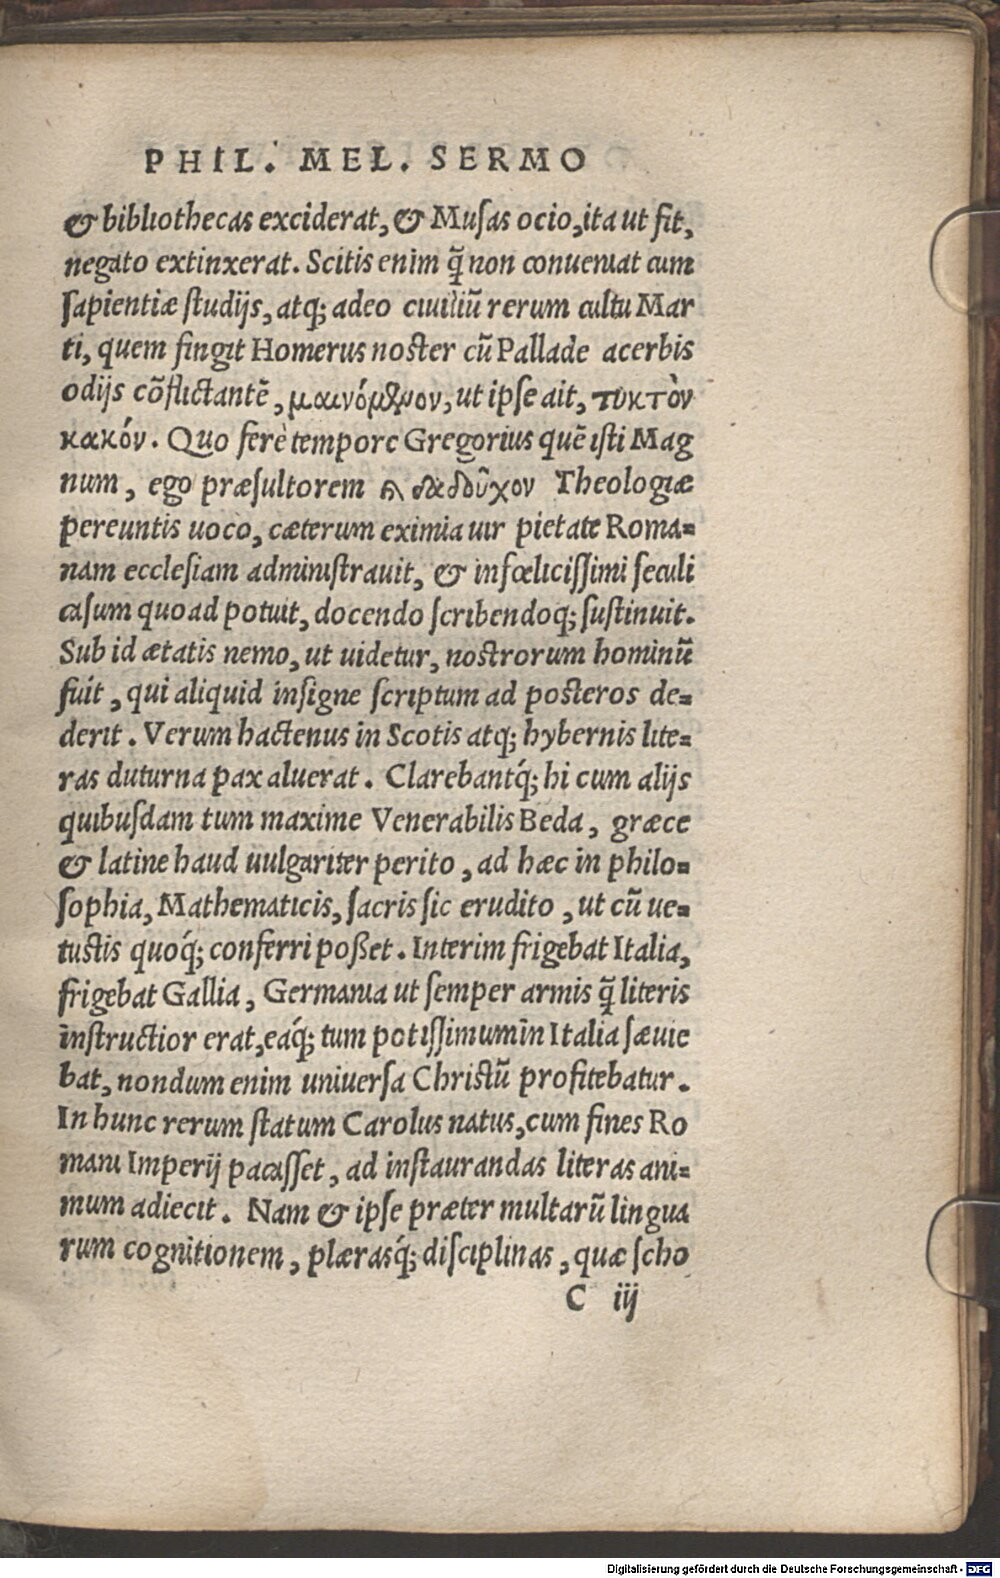 PHIL. MEL. SERMO
& bibliothecas exciderat, & Musas ocio, ita ut fit,
negato extinxerat. Scitis enim q̃ non conueniat cum
sapientiæ studijs, atq; adeo ciuiliũ rerum cultu Mar
ti, quem fingit Homerus noster cũ Pallade acerbis
odijs cõflictantẽ, μαινόμενον, ut ipse ait, τυκτὸν
κακόν. Quo ferè tempore Gregorius quẽ isti Mag
num, ego præsultorem & δαδοῦχον Theologiæ
pereuntis uoco, cæterum eximia uir pietate Roma=
nam ecclesiam administrauit, & infœlicissimi seculi
casum quoad potuit, docendo scribendoq; sustinuit.
Sub id ætatis nemo, ut uidetur, nostrorum hominũ
fuit, qui aliquid insigne scriptum ad posteros de=
derit. Verum hactenus in Scotis atq; hybernis lite=
ras duturna pax aluerat. Clarebantq́; hi cum alijs
quibusdam tum maxime Venerabilis Beda, græce
& latine haud uulgariter perito, ad hæc in philo=
sophia, Mathematicis, sacris sic erudito, ut cũ ue=
tustis quoq́; conferri poßet. Interim frigebat Italia,
frigebat Gallia, Germania ut semper armis q̃ literis
instructior erat, eaq́; tum potissimum in Italia sæuie
bat, nondum enim uniuersa Christũ profitebatur.
In hunc rerum statum Carolus natus, cum fines Ro
mani Imperij pacasset, ad instaurandas literas ani=
mum adiecit. Nam & ipse præter multarũ lingua
rum cognitionem, plærasq́; disciplinas, quæ scho
C iij
Digitalisierung gefördert durch die Deutsche Forschungsgemeinschaft - DFG